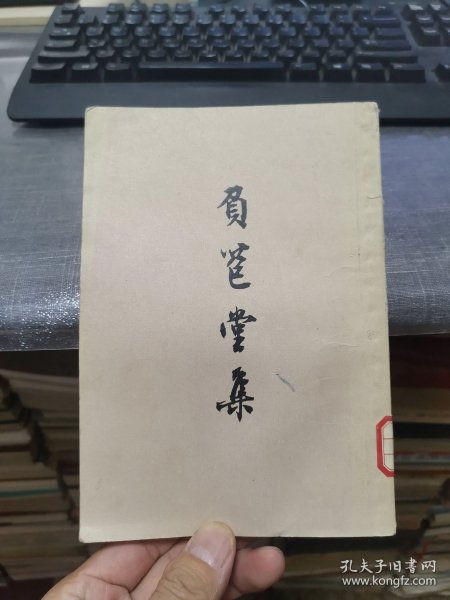 負苞堂集
孔夫子旧书网
www.kongfz.com